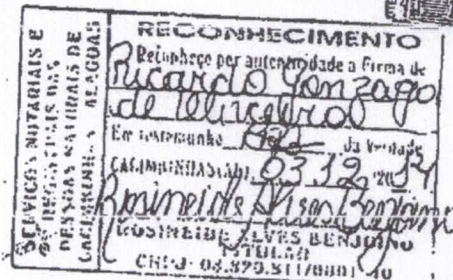 SERVIÇOS NOTARIAIS E
DE REGISTRAIS DAS
PESSOAS NATURAIS DE
CACIMBINHAS ALAGOAS
RECONHECIMENTO
Reconheço por autenticidade a Firma de
Ricardo Gonzaga
de
Em testemunho da Verdade
CACIMBINHAS(AL), 03 12 20
Rosineide Alves Benjoino
ROSINEIDE ALVES BENJOINO
TITULAR
CNPJ: